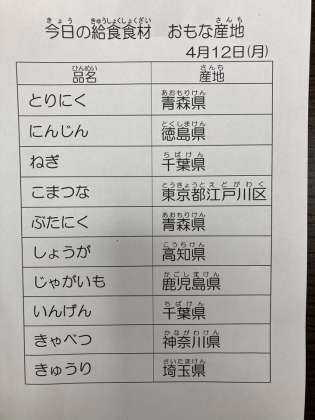 今日の給食食材　おもな産地
4月12日(月)
品名　産地
とりにく　青森県
にんじん　徳島県
ねぎ　千葉県
こまつな　東京都江戸川区
ぶたにく　青森県
しょうが　高知県
じゃがいも　鹿児島県
いんげん　千葉県
きゃべつ　神奈川県
きゅうり　埼玉県